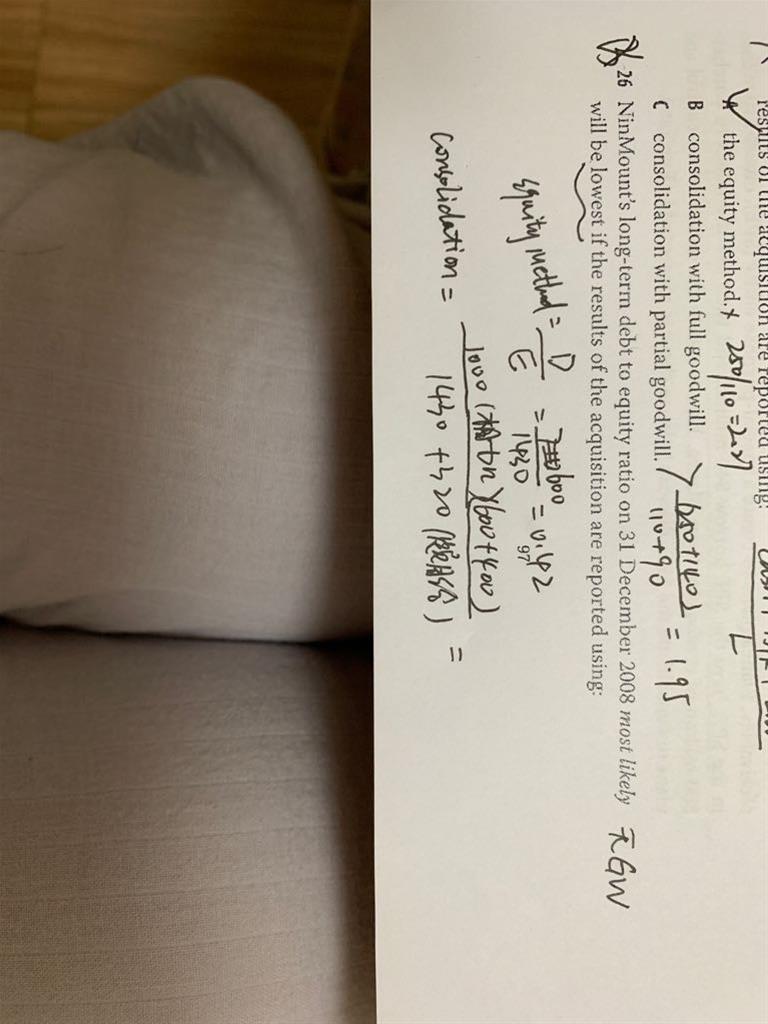 results of the acquisition are reported using:
A the equity method. × 250/110 = 2.27
B consolidation with full goodwill.
C consolidation with partial goodwill. > 650+140 / 110+90 = 1.95
26 NinMount's long-term debt to equity ratio on 31 December 2008 most likely 无GW
will be lowest if the results of the acquisition are reported using:
Equity method = D/E = 600/1430 = 0.42
97
consolidation = 1000 (600+400) / 1430 + 320 =